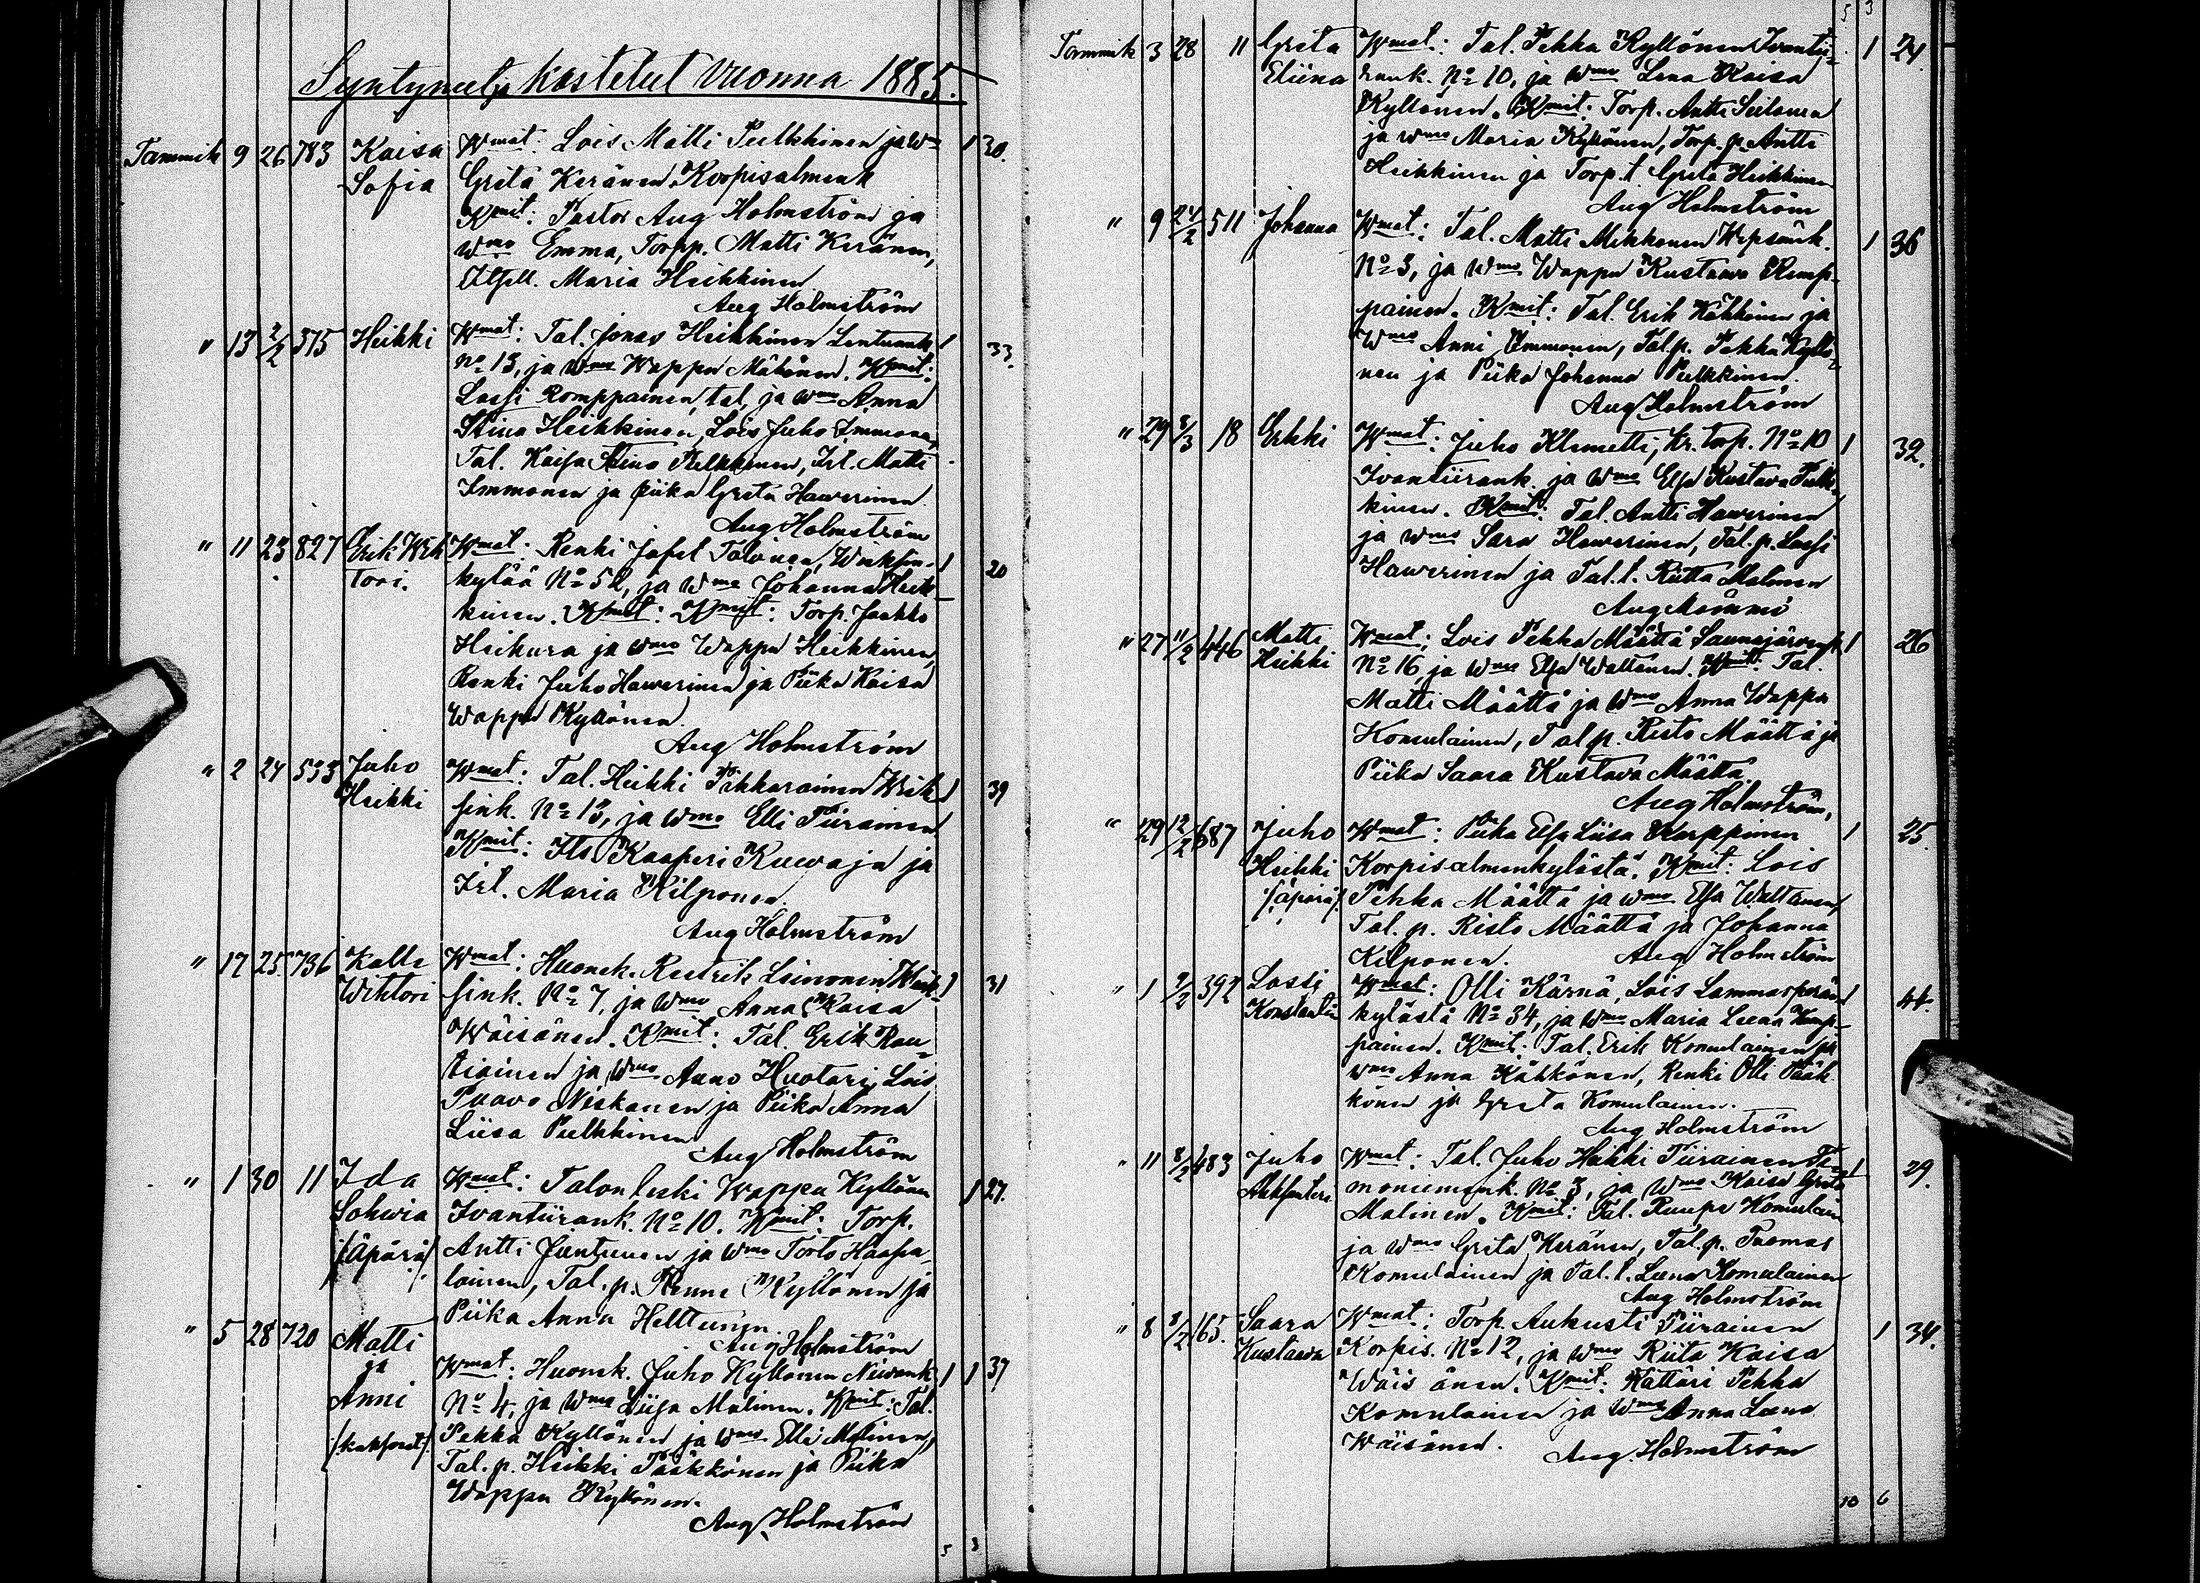 Syntyneet ja kastetut vuonna 1885.
Tammik 9 26 783 Kaisa Sofia Wmat: Lois Matti Pulkkinen ja Wmo 1 30.
Greta Keränen, Korpisalmenk
Kmit: Pastor Aug Holmström ja
Wmo Emma, Torpp. Matti Keränen,
Maria Heikkinen
Aug Holmström
" 13 2/2 375 Heikki Wmat: Tal. Jonas Heikkinen Lentuank 1 33.
No 13, ja Wmo Wappu Mähönen. Kmit:
Lassi Romppainen, tal, ja Wmo Anna
Stina Heikkinen, Lois Juho Immonen,
Tal. Kaisa Stina Pulkkinen, Irl. Matti
Immonen ja piika Greta Hawerinen
Aug Holmström
" 11 23 827 Erik Wihtori. Wmat: Renki Jafet Tolonen, Wieksin- 1 20
kylää No 52, ja Wmo Johanna Heik-
kinen. Kmit: Torp. Jaakko
Heikura ja Wmo Wappu Heikkinen,
Renki Juho Hawerinen ja Piika Kaisa
Wappu Kyllönen.
Aug Holmström
" 2 24 533 Juho Heikki Wmat: Tal. Heikki Pikkarainen Wiek- 1 39
sink. No 13, ja Wmo Elli Piirainen
Kmit: Its Kaaperi Kuwaja ja
Irl. Maria Kilponen.
Aug Holmström
" 17 25 736 Kalle Wihtori Wmat: Huonek. Reetrik Leinonen Wiek- 1 31
sink. No 7, ja Wmo Anna Kaisa
Wäisänen. Kmit: Tal. Erik Rau-
tiainen ja Wmo Anna Huotari, Lois
Paavo Niskanen ja Piika Anna
Liisa Pulkkinen
Aug Holmström
" 1 30 11 Ida Sohwia /äpärä/ Wmat: Talonleski Wappu Kyllönen 1 27.
Iwantiirank. No 10. Kmit: Torp.
Antti Juntunen ja Wmo Torto Haapa-
lainen, Tal. p. Kyllönen ja
Piika Anna Helttunen.
Aug Holmström
" 5 28 720 Matti ja Anni /kaksoset/ Wmat: Huonek. Juho Kyllönen Niwank 1 1 37
No 4, ja Wmo Liisa Malinen. Kmit: Tal.
Pekka Kyllönen ja Wmo Elli Malinen,
Tal. p. Heikki Pääkkönen ja Piika
Wappu Kyllönen.
Aug Holmström
5 3
5 3
Tammik 3 28 11 Greta Eliina Wmat: Tal. Pekka Kyllönen Iwantii- 1 24.
rank. No 10, ja Wmo Lena Kaisa
Kyllönen. Kmit: Torp. Antti Seilonen
ja Wmo Maria Kyllönen, Torp. p. Antti
Heikkinen ja Torp. t. Greta Heikkinen
Aug Holmström
" 9 24/2 511 Johanna Wmat: Tal. Matti Mikkonen Wepsänk. 1 36
No 3, ja Wmo Wappu Kustawa Kemp-
painen. Kmit: Tal. Erik Kähkönen ja
Wmo Anni Immonen, Tal. p. Pekka Kyllö-
nen ja Piika Johanna Pulkkinen.
Aug Holmström
" 29 8/3 18 Erkki Wmat: Juho Klemetti, kr. torp. No 10 1 32.
Iwantiirank. ja Wmo Elsa Kustava Pulk-
kinen. Kmit: Tal. Antti Hawerinen
ja Wmo Sara Hawerinen, Tal. p. Lassi
Hawerinen ja Tal. t. Riitta Malinen
Aug
" 27 11/2 446 Matti Heikki Wmat: Lois Pekka Määttä Saunajärwenk 1 26
No 16, ja Wmo Elsa Waltanen. Kmit: Tal.
Matti Määttä ja Wmo Anna Wappu
Komulainen, Tal p. Risto Määttä ja
Piika Saara Kustava Määttä.
Aug Holmström,
" 29 12/2 687 Juho Heikki /äpärä/. Wmat: Piika Elsa Liisa Karppinen 1 25.
Korpisalmenkylästä. Kmit: Lois
Pekka Määttä ja Wmo Elsa Waltanen,
Tal. p. Risto Määttä ja Johanna
Kilponen. Aug Holmström
" 1 2/2 392 Lassi Konstantin Wmat: Olli Kärnä, Lois Lammasperän 1 44.
kylästä No 34, ja Wmo Maria Leena Kemp-
painen. Kmit: Tal. Erik Komulainen ja
Wmo Anna Kähkönen, Renki Olli Pääk-
könen ja Greta Komulainen.
Aug Holmström
" 11 8/2 483 Juho Aleksanteri Wmat: Tal. Juho Heikki Piirainen Ti- 1 29.
moniemenk. No 3, ja Wmo Kaisa Greta
Malinen. Kmit: Tal. Ruupe Komulain
ja Wmo Greta Keränen, Tal. p. Tuomas
Komulainen ja Tal. t. Leena Komulainen
Aug Holmström
" 8 8/2 165. Saara Kustaava Wmat: Torp. Aukusti Piirainen 1 34.
Korpis. No 12, ja Wmo Riita Kaisa
Wäisänen. Kmit: Kättäri Pekka
Komulainen ja Wmo Anna Leena
Wäisänen. Aug. Holmström
10 6